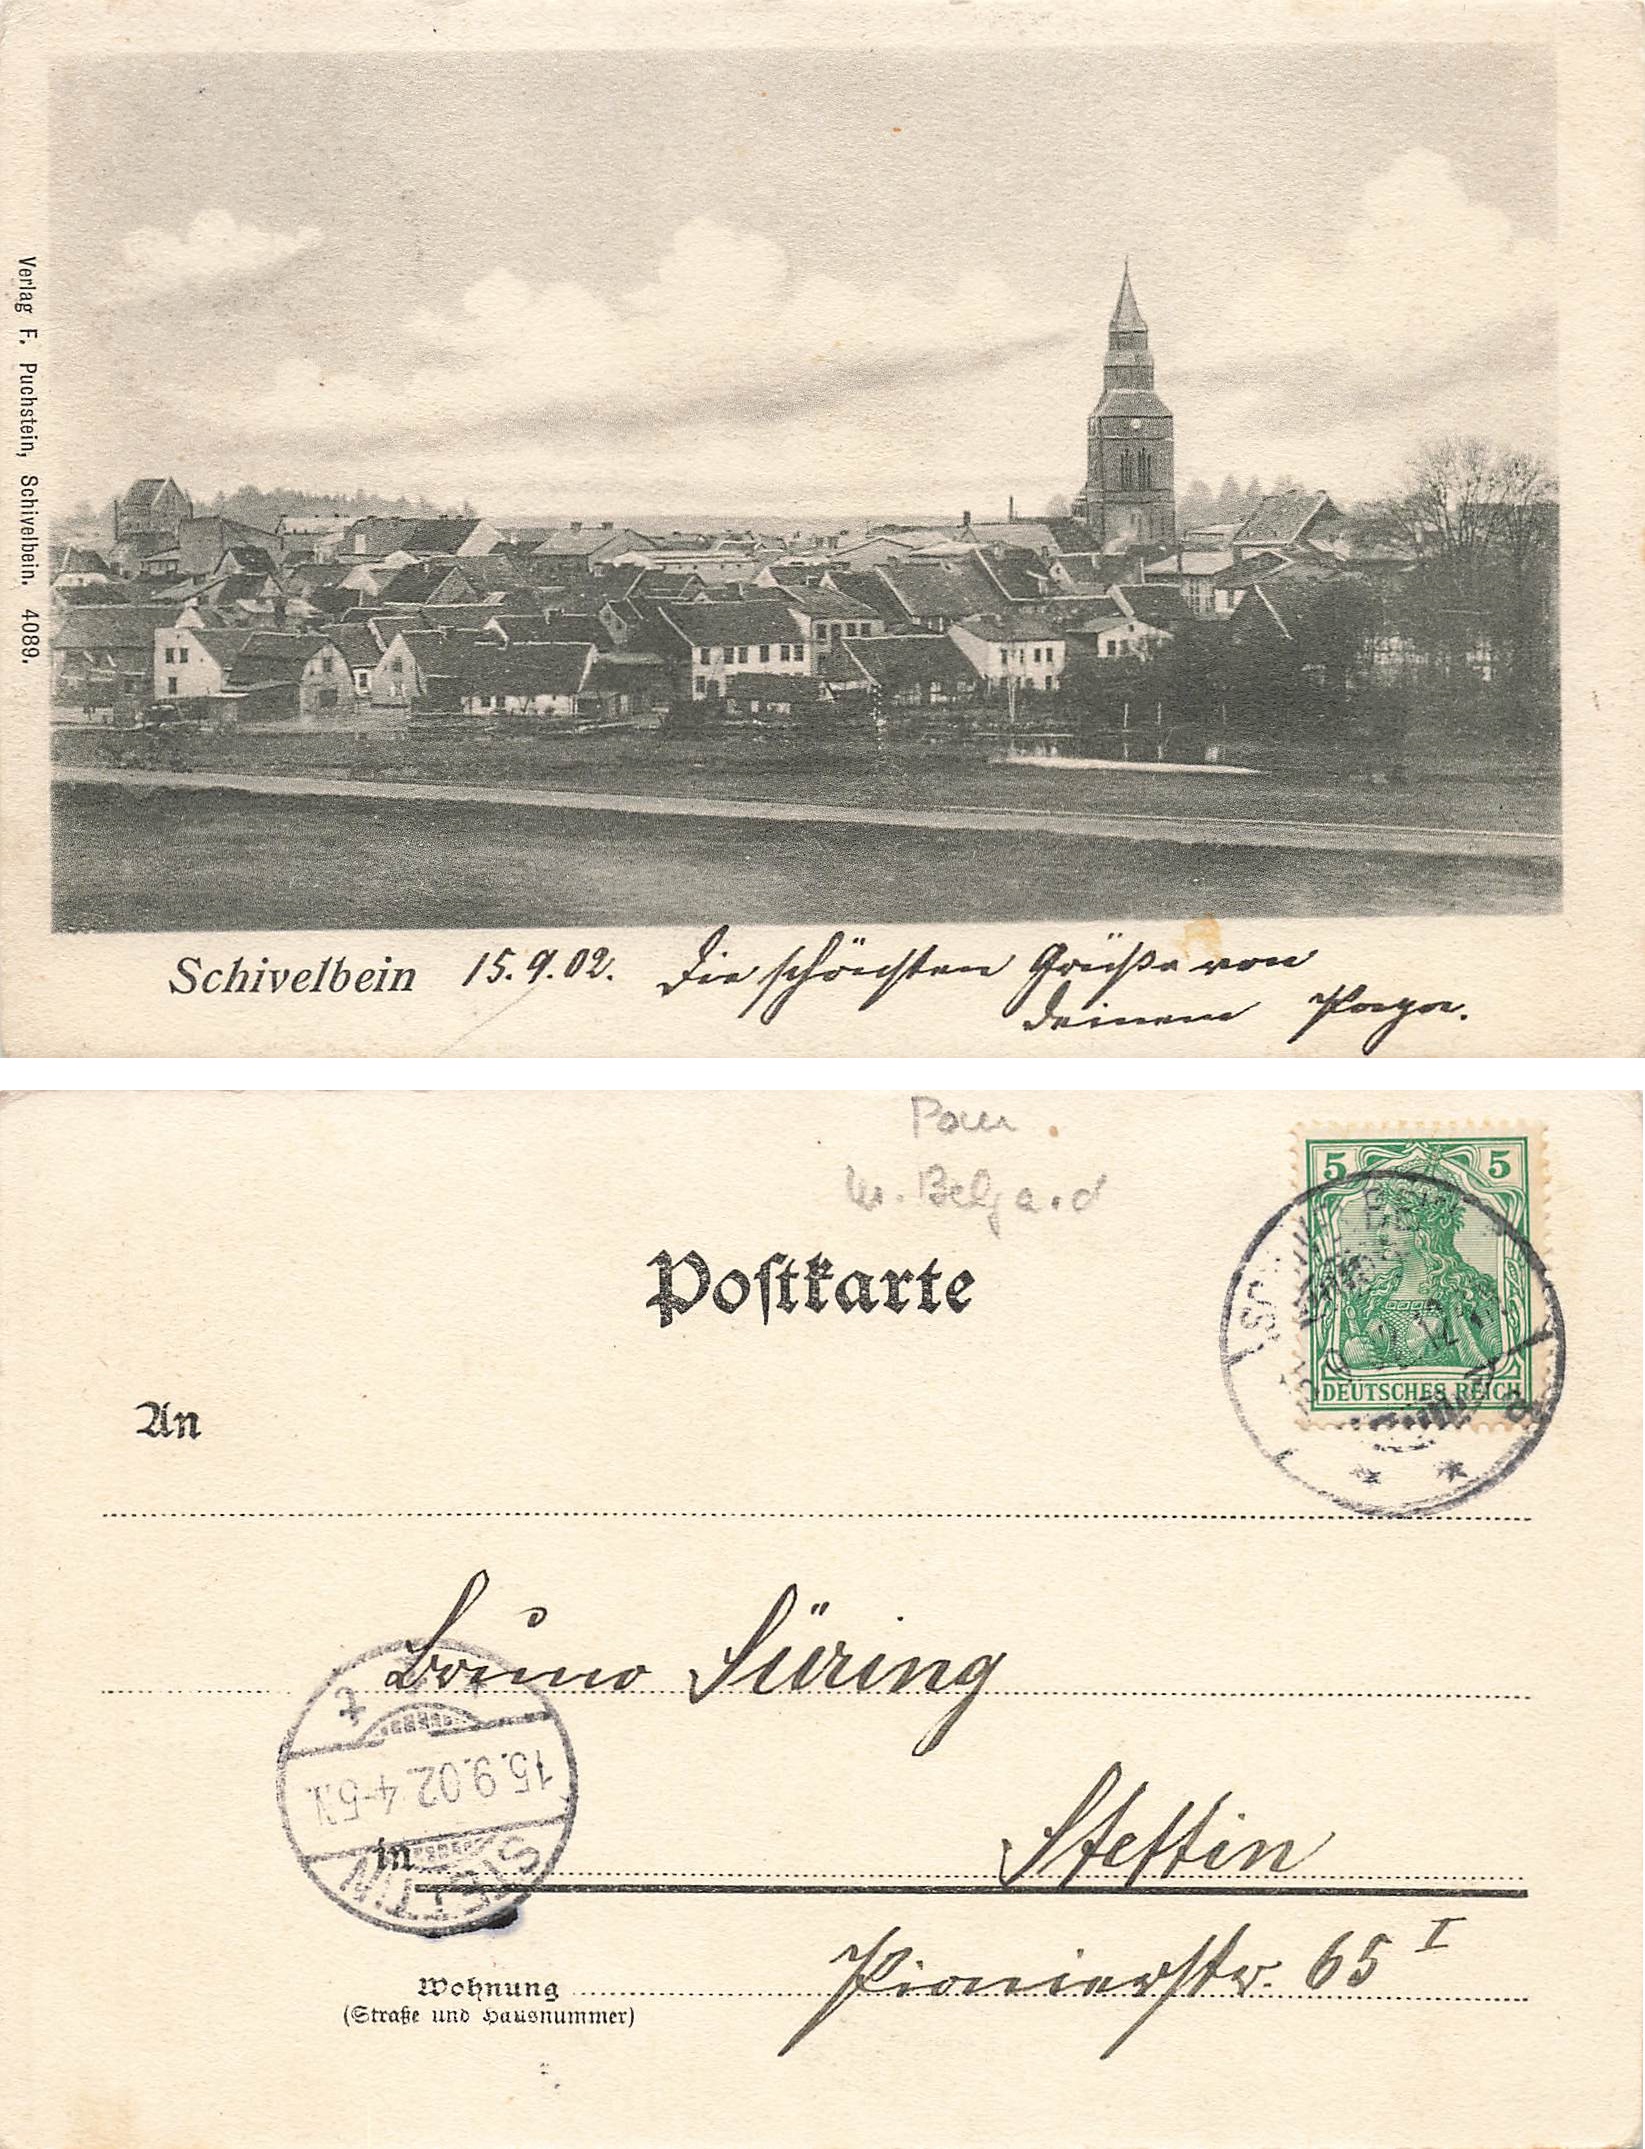 Verlag F. Puchstein, Schivelbein. 4089.
Schivelbein 15.9.02. Die schönsten Grüße von
deinem Papa.
Pom.
Kr. Belgard
Postkarte
5 5
DEUTSCHES REICH
An
Bruno Süring
15.9.02. 4-5 N.
STETTIN
in Stettin
Wohnung Pionierstr. 65 I
(Straße und Hausnummer)